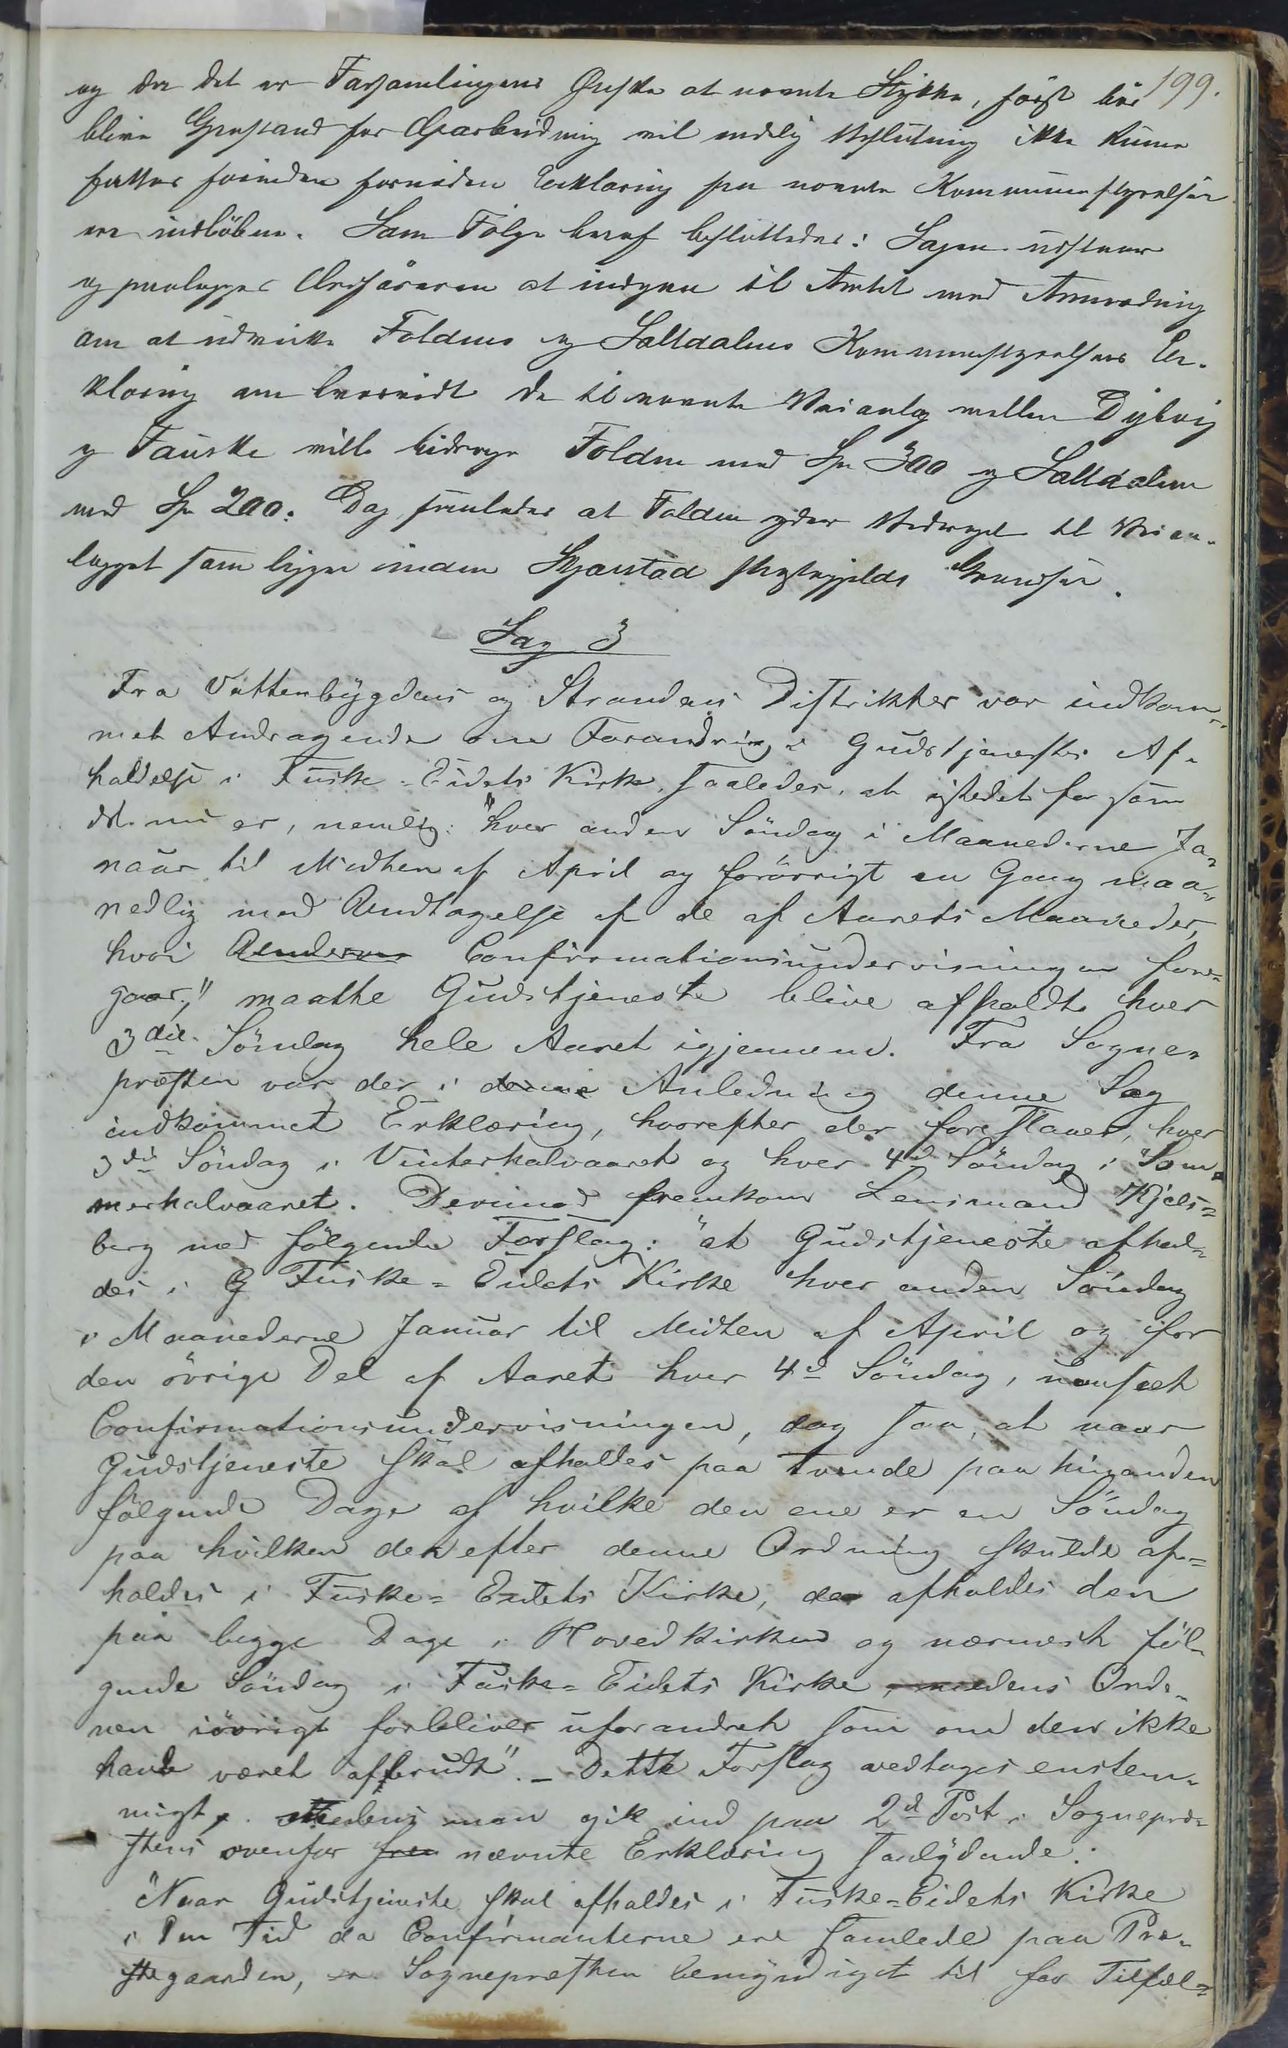 199.
og da det er Forsamlingens Ønske at nævnte Stykke, først bør
blive Gjenstand for Oparbeidning vil endelig Beslutning ikke kunne
fattes forinden fornøden Erklæring fra nævnte Kommunestyrelser
ere indløbne. Som Følge heraf besluttedes: Sagen udstaar
og paalægges Ordføreren at indgaa til Amtet med Anmodning
om at udvirke Foldens og Saltdalens Kommunestyrelsers Er-
klæring om hvorvidt de til nævnte Veianlæg mellem Dybvig
og Fauske ville bidrage Folden med Sp 300 og Saltdalen
med Sp 200. Dog saaledes at Folden yder Bidraget til Veian-
lægget som ligger inden Skjerstad Præstegjelds Grændser.
Sag 3
Fra Vattenbygdens og Strandens Distrikter var indkom-
met Andragende om Forandring i Gudstjenestes Af-
holdelse i Fuske-Eidets Kirke, saaledes, at istedet for som
det nu er, nemlig: "hver anden Söndag i Maanederne Ja-
nuar til Midten af April og forövrigt en Gang maa-
nedlig med Undtagelse af de af Aarets Maaneder,
hvori Confirmationsundervisningen fore-
gaar," maatte Gudstjeneste blive afholdt hver
3die Söndag hele Aaret igjennem. Fra Sogne-
præsten var der i Anledning denne Sag
indkommet Erklæring, hvorefter der foreslaaes, hver
3die Söndag i Vinterhalvaaret og hver 4de Söndag i Som-
merhalvaaret. Derimod fremkom Lensmand Kjels-
berg med fölgende Forslag: "at Gudstjeneste afhol-
des i Fuske-Eidets Kirke hver anden Söndag
i Maanederne Januar til Midten af April og for
den övrige Del af Aaret hver 4d Söndag, uanseet
Confirmationsundervisningen, dog saa, at naar
Gudstjeneste skal afholdes paa tvende paa hinanden
fölgende Dage af hvilke den ene er en Söndag
paa hvilken den efter denne Ordning skulde af-
holdes i Fuske-Eidets Kirke, da afholdes den
paa begge Dage i Hovedkirken og nærmest föl-
gende Söndag i Fuske-Eidets Kirke, medens Orde-
nen iövrigt forbliver uforandret som om den ikke
havde været afbrudt". - Dette Forslag vedtoges enstem-
migt, medens man gik ind paa 2d Post i Sognepræ-
stens ovenfor nævnte Erklæring saalydende:
"Naar Gudstjeneste skal afholdes i Fuske-Eidets Kirke
i den Tid da Confirmanterne ere samlede paa Præ-
stegaarden, er Sognepræsten bemyndiget til for Tilfæl-